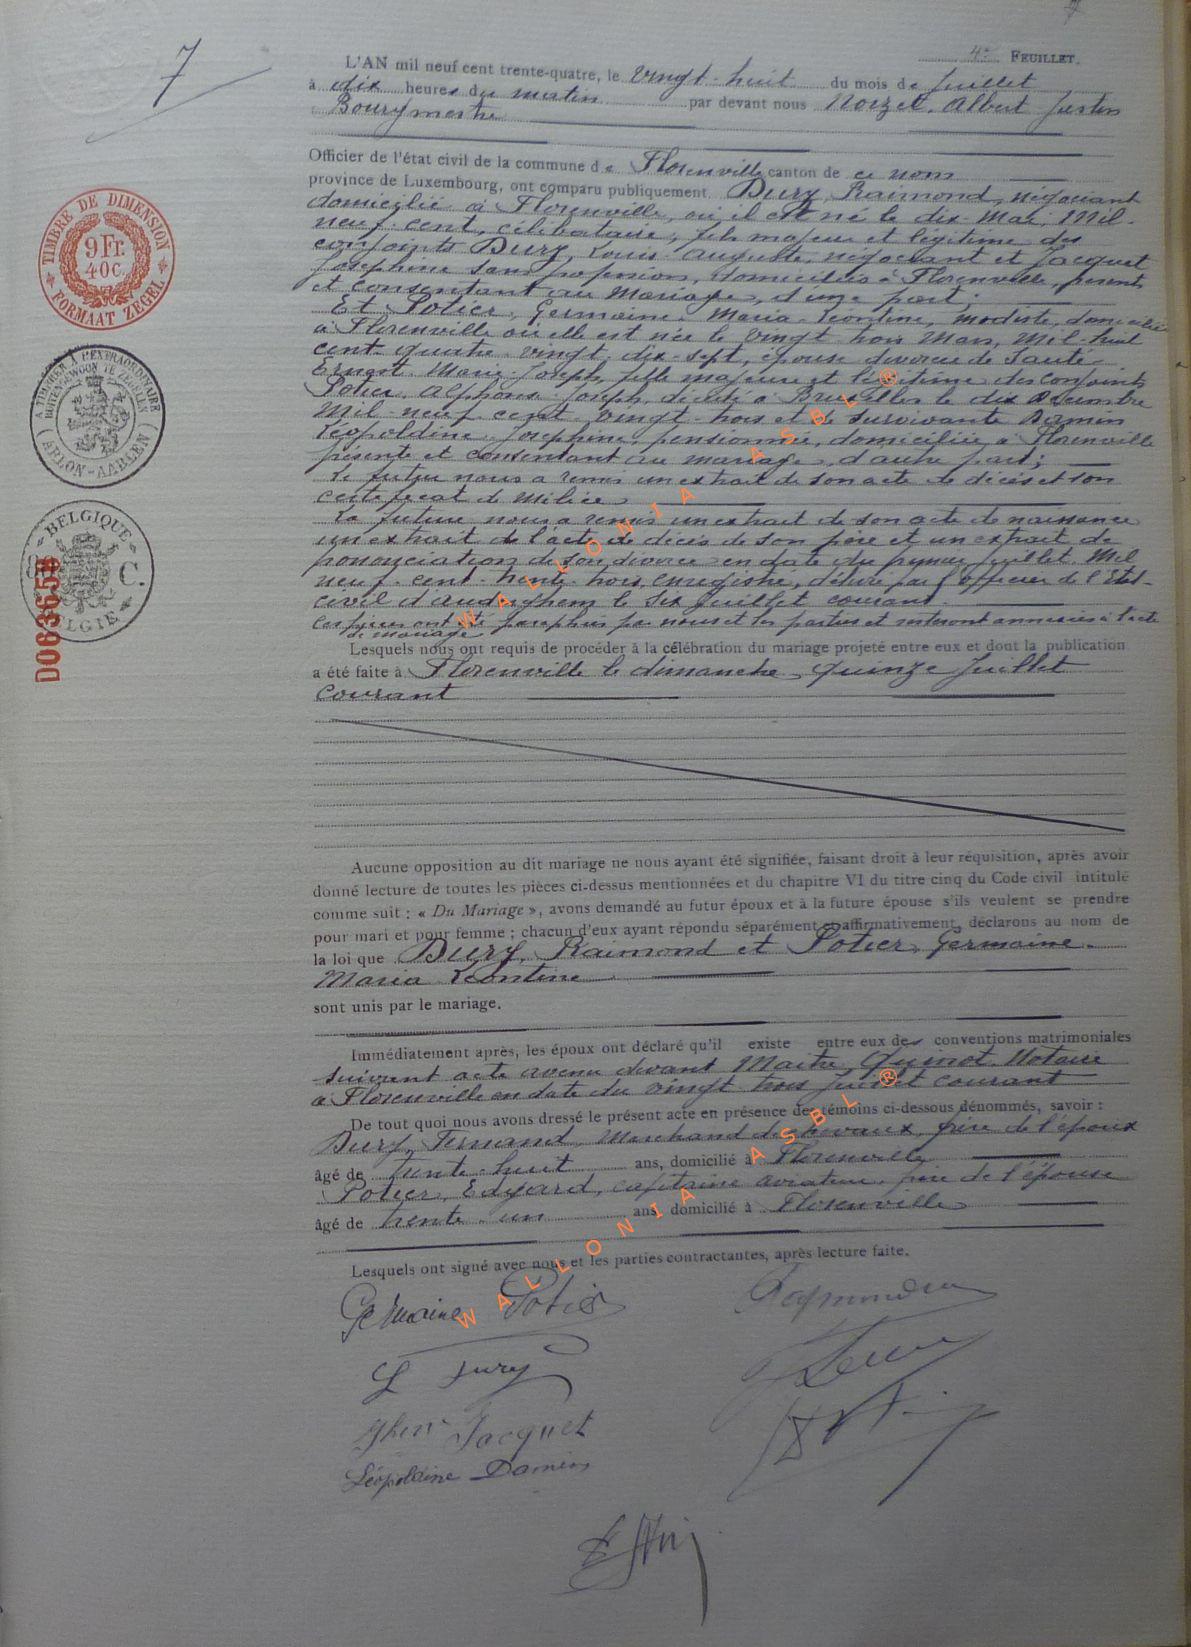 7
4e FEUILLET.
L'AN mil neuf cent trente-quatre, le vingt-huit du mois de Juillet
à dix heures du matin par devant nous Noizet, Albert Justin
Bourgmestre
Officier de l'état civil de la commune de Florenville canton de ce nom
province de Luxembourg, ont comparu publiquement Dury, Raimond, négociant
domicilié à Florenville, où il est né le dix Mai, Mil-
neuf-cent, célibataire, fils majeur et légitime des
conjoints Dury, Louis-Auguste, négociant et Jacquet
Joséphine sans profession, domiciliés à Florenville, présents
et consentant au Mariage, d'une part;
Et Potier, Germaine-Maria-Léontine, modiste, domiciliée
à Florenville où elle est née le vingt trois Mars, Mil-huit
cent-quatre-vingt-dix-sept, épouse divorcée de Sauté
Ernest-Marie-Joseph, fille majeure et légitime des conjoints
Potier, Alphonse-Joseph, décédé à Bruxelles le dix Décembre
Mil-neuf-cent-vingt-trois et de survivante Damien
Léopoldine-Joséphine, pensionnée, domiciliée à Florenville
présente et consentant au mariage, d'autre part;
Le futur nous a remis un extrait de son acte de décès et son
certificat de Milice
La future nous a remis un extrait de son acte de naissance
un extrait de l'acte de décès de son père et un extrait de
prononciation de son divorce en date du premier Juillet Mil
neuf-cent-trente-trois, enregistré, délivré par l'Officier de l'Etat-
civil d'Auderghem le six Juillet courant.
Ces pièces ont été paraphées par nous et les parties et resteront annexées à l'acte
de mariage
Lesquels nous ont requis de procéder à la célébration du mariage projeté entre eux et dont la publication
a été faite à Florenville le dimanche, quinze Juillet
courant
Aucune opposition au dit mariage ne nous ayant été signifiée, faisant droit à leur réquisition, après avoir
donné lecture de toutes les pièces ci-dessus mentionnées et du chapitre VI du titre cinq du Code civil intitulé
comme suit : « Du Mariage », avons demandé au futur époux et à la future épouse s'ils veulent se prendre
pour mari et pour femme ; chacun d'eux ayant répondu séparément et affirmativement, déclarons au nom de
la loi que Dury, Raimond et Potier, Germaine-
Maria Léontine
sont unis par le mariage.
Immédiatement après, les époux ont déclaré qu'il existe entre eux des conventions matrimoniales
suivant acte avenu devant Maître Quinot Notaire
à Florenville en date du vingt trois Juillet courant
De tout quoi nous avons dressé le présent acte en présence des témoins ci-dessous dénommés, savoir :
Dury, Fernand, Marchand de chevaux, frère de l'époux
âgé de trente-huit ans, domicilié à Florenville
Potier, Edgard, capitaine aviateur, frère de l'épouse
âgé de trente-un ans, domicilié à Florenville
Lesquels ont signé avec nous et les parties contractantes, après lecture faite.
Germaine Potier
L Dury
Jacquet
Léopoldine Damien
TIMBRE DE DIMENSION
9Fr.
40C.
FORMAAT ZEGEL
A TIMBRER A L'EXTRAORDINAIRE
BUITENGEWOON TE ZEGELEN
(ARLON-AARLEN)
BELGIQUE
C.
BELGIE
D063658
WALLONIA ASBL ®
WALLONIA ASBL ®